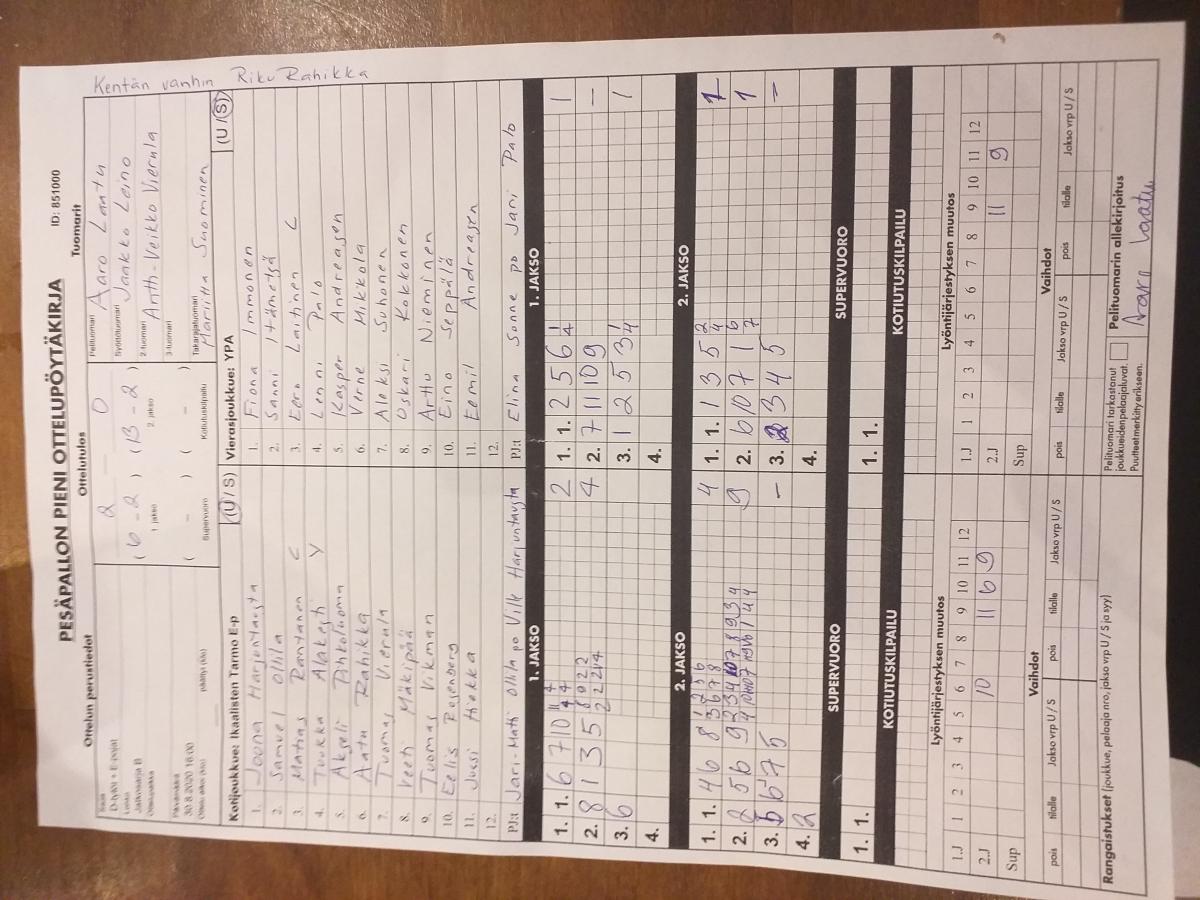 PESÄPALLON PIENI OTTELUPÖYTÄKIRJA
ID: 851000
Ottelun perustiedot
Sarja
D-tytöt + E-pojat
Lohko
Jatkosarja B
Ottelupaikka
Päivämäärä
30.8.2020 16:00
Ottelu alkoi (klo)
päättyi (klo)
Ottelutulos
2 0
(6 - 2) (13 - 2)
1. jakso 2. jakso
( - ) ( - )
Supervuoro Kotiutuskilpailu
Tuomarit
Pelituomari
Aaro Laatu
Syöttötuomari
Jaakko Leino
2-tuomari
Antti-Veikko Vierula
3-tuomari
Takarajatuomari
Mariitta Suominen
Kentän vanhin Riku Rahikka
Kotijoukkue: Ikaalisten Tarmo E-p (U / S)
1. Joona Harjuntausta
2. Samuel Ollila
3. Matias Rantanen C
4. Tuukka Alakesti Y
5. Akseli Pihkoluoma
6. Aatu Rahikka
7. Tuomas Vierula
8. Veeti Mäkipää
9. Tuomas Vikman
10. Eelis Rosenberg
11. Jusi Hiekka
12.
PJ:t Jari-Matti Ollila po Ville Harjuntausta
Vierasjoukkue: YPA (U / S)
1. Fiona Immonen
2. Sanni Itämetsä
3. Eero Laitinen C
4. Lenni Palo
5. Kasper Andreasen
6. Verne Mikkola
7. Aleksi Suhonen
8. Oskari Kokkonen
9. Arttu Nieminen
10. Eino Seppälä
11. Eemil Andreasen
12.
PJ:t Elina Sonne po Jani Palo
1. JAKSO
1. 1. 6 7 10 11 4 4 4 2
2. 8 1 3 5
4
3. 6
4.
1. JAKSO
1. 1. 2 5 6 1 4 1
2. 7 11 10 9 -
3. 1 2 5 3 1 4 1
4.
2. JAKSO
1. 1. 4 6 8 1 3 2 6 5 7 6 8 4
2.
9
3. 6 7 5 -
4. 2
2. JAKSO
1. 1. 1 3 5 2 4 1
2. 6 10 7 1 6 7 1
3. 3 4 5 -
4.
SUPERVUORO
1. 1.
SUPERVUORO
1. 1.
KOTIUTUSKILPAILU
KOTIUTUSKILPAILU
Lyöntijärjestyksen muutos
1.J 1 2 3 4 5 6 7 8 9 10 11 12
2.J 10 11 6 9
Sup
Lyöntijärjestyksen muutos
1.J 1 2 3 4 5 6 7 8 9 10 11 12
2.J 11 9
Sup
Vaihdot
pois tilalle Jakso vrp U / S pois tilalle Jakso vrp U / S
Vaihdot
pois tilalle Jakso vrp U / S pois tilalle Jakso vrp U / S
Rangaistukset (joukkue, pelaaja nro, jakso vrp U / S ja syy)
Pelituomari tarkastanut
joukkueiden pelaajaluvat.
Puutteet merkitty erikseen.
Pelituomarin allekirjoitus
Aaro Laatu